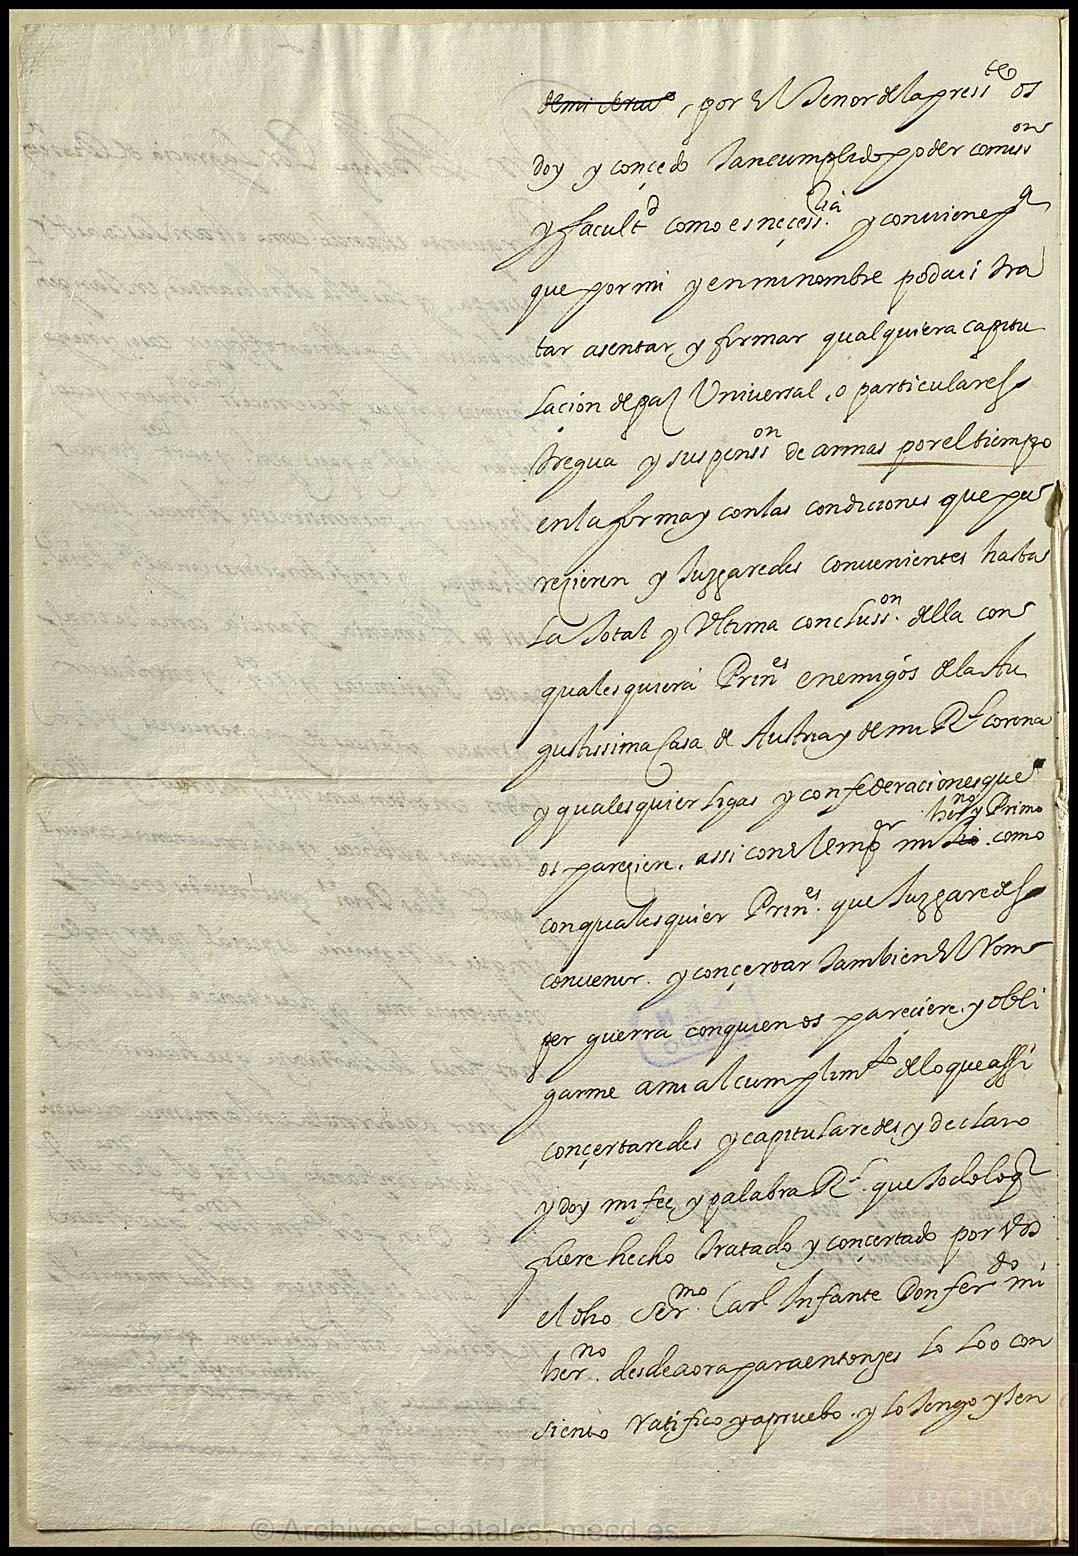 ~~de mi serui~~, por el tenor de la press.te os
doy y conçedo tan cumplido poder comiss.on
y facult.d como es neçess.ria y conuiene p.a
que por mi y en mi nombre podais tra
tar asentar, y firmar qualquiera capitu
laçion de paz Uniuersal, o particulares
tregua y suspenss.on de armas por el tiempo
en la forma y con las condiciones que pa
reçieren y Juzgaredes conuenientes hasta
la total y Ultima concluss.on della con
qualesquiera Prin.es enemigos de la Au
gustissima Casa de Austria y de mi R.l Corona
y qualesquier ligas y confederaciones que
her.no y Primo
os pareçiere, assi con el Emp.or mi ~~tio~~ como
con qualesquier Prin.es que Juzgaredes
conuenir. y conçertar tambien el Rom
per guerra con quien os pareciere, y obli
garme a mi al cumplim.to de lo que assi
conçertaredes y capitularedes, y declaro
y doy mi fee, y palabra R.l que todo lo q
fuere hecho tratado y conçertado por Vos
el dho Ser.mo Car.l Infante Don Fer.do mi
her.no desde aora para entonzes lo loo con
siento Ratifico y apruebo y lo tengo y ten
© Archivos Estatales, mecd.es